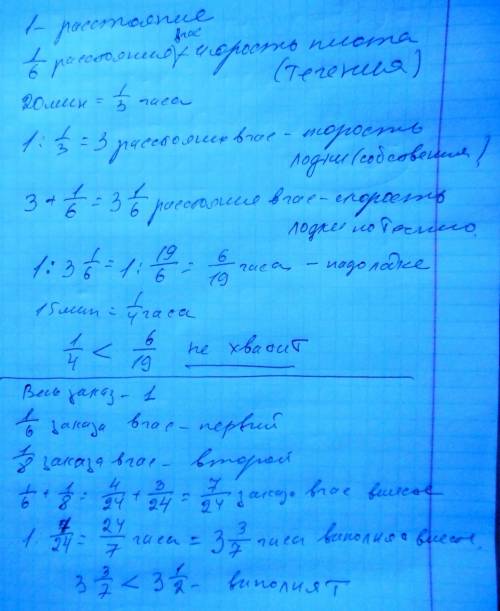 1 - расстояние
1/6 расстояния в час - скорость плота
(течения)
20 мин = 1/3 часа
1 : 1/3 = 3 расстояния в час - скорость
лодки (собственная)
3 + 1/6 = 3 1/6 расстояние в час - скорость
лодки по течению
1 : 3 1/6 = 1 : 19/6 = 6/19 часа - надо лодке
15 мин = 1/4 часа
1/4 < 6/19 не хватит
Весь заказ - 1
1/6 заказа в час - первый
1/8 заказа в час - второй
1/6 + 1/8 = 4/24 + 3/24 = 7/24 заказа в час вместе
1 : 7/24 = 24/7 часа = 3 3/7 часа выполнят вместе
3 3/7 < 3 1/2 - выполнят